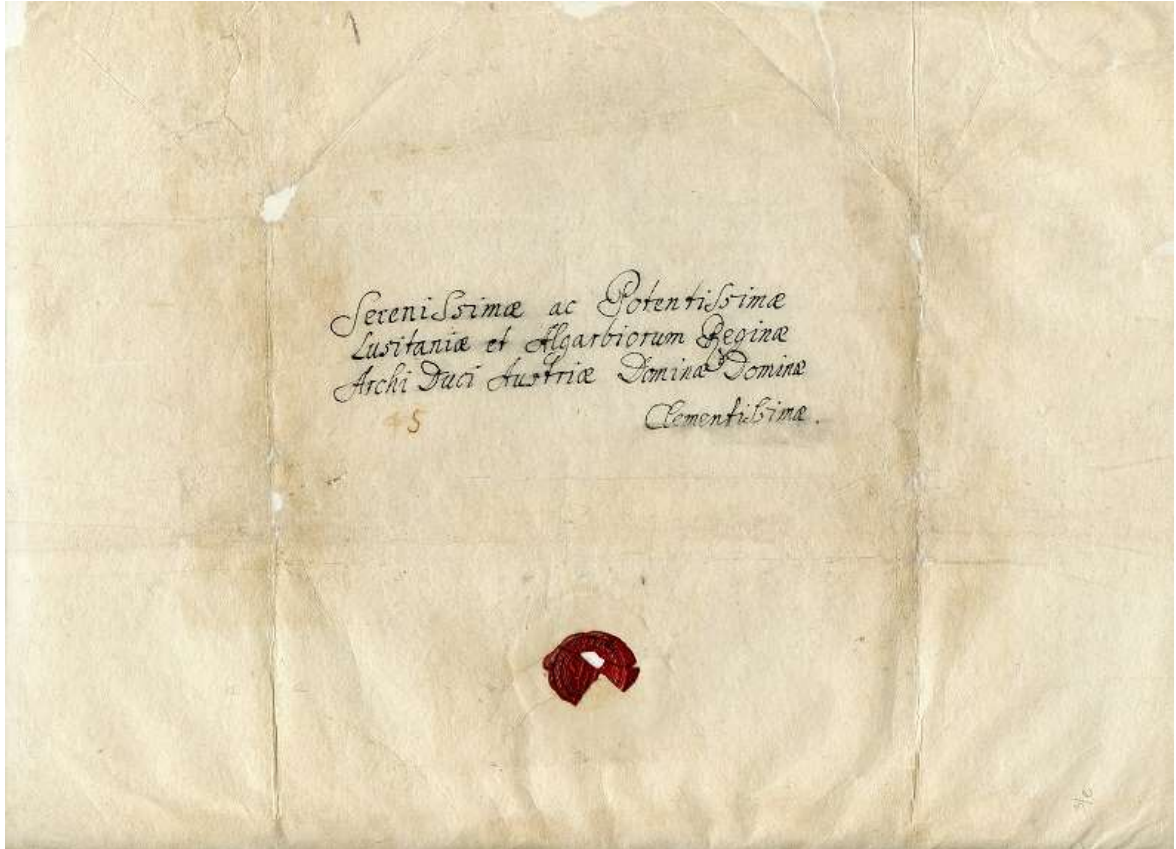 Serenissimæ ac Potentissimæ
Lusitaniæ et Algarbiorum Reginæ
Archi Duci Austriæ Dominæ Dominæ
Clementissimæ.
45